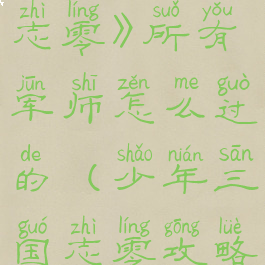 zhì líng suǒ yǒu
志零》所有
jūn shī zěn me guò
军师怎么过
de shǎo nián sān
的（少年三
guó zhì líng gōng lüè
国志零攻略